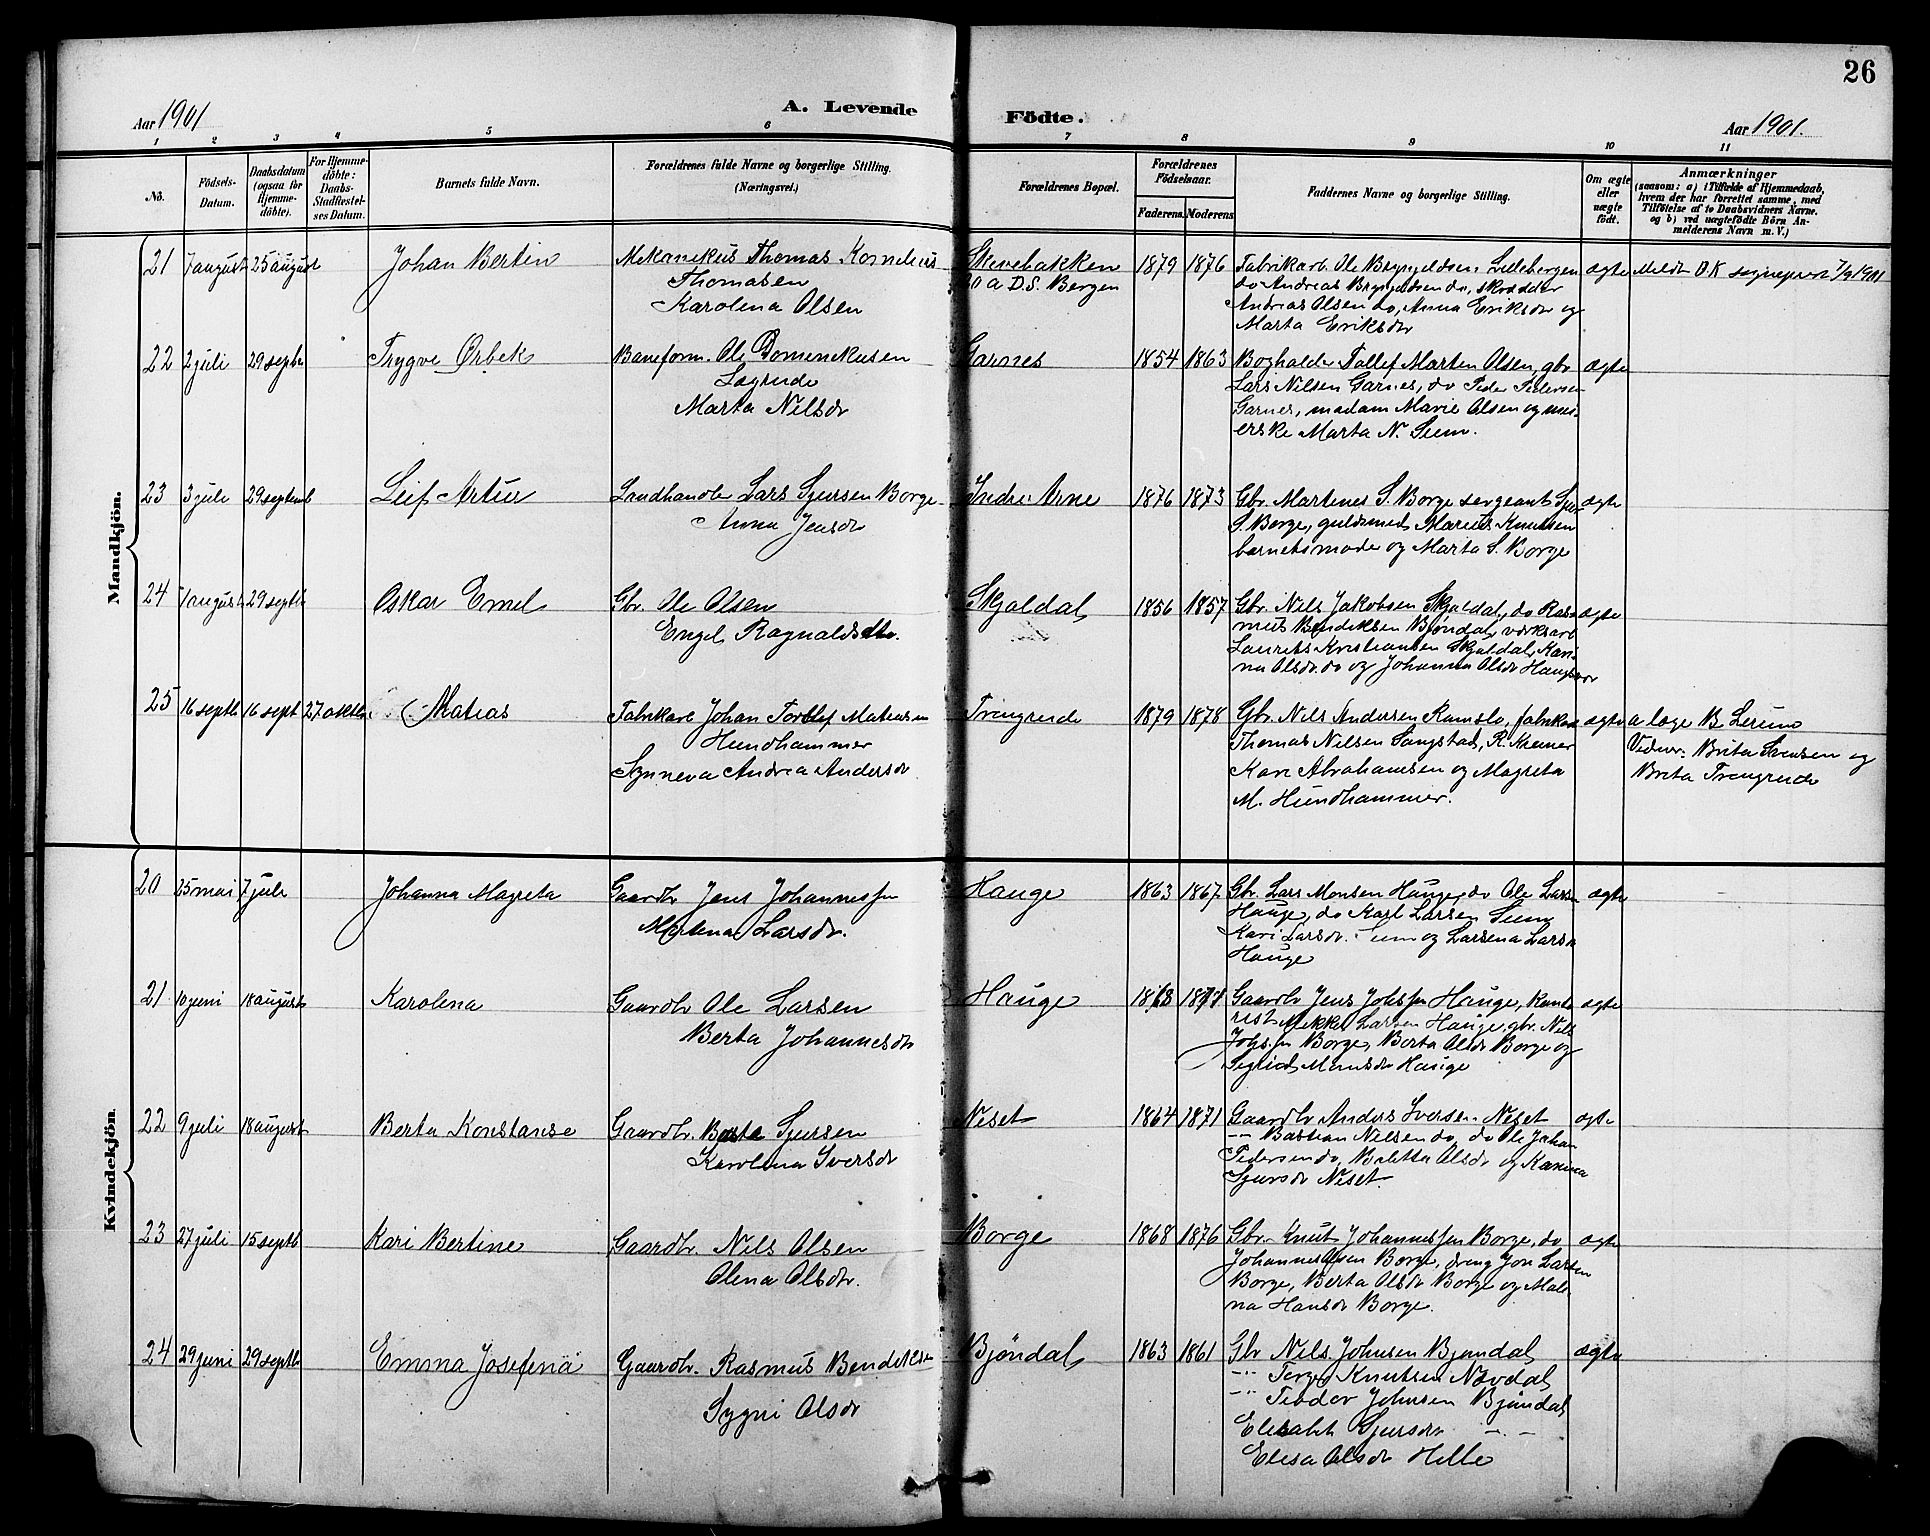 26
Aar 1901
A. Levende
Födte.
Aar 1901.
1 2 3 4 5 6 7 8 9 10 11
No.
Födsels-Datum.
Daabsdatum (ogsaa for Hjemmedöbte).
For Hjemmedöbte: Daabs-Stadfæstelses Datum.
Barnets fulde Navn.
Forældrenes fulde Navne og borgerlige Stilling.
(Næringsvei.)
Forældrenes Bopæl.
Forældrenes Födselsaar.
Faderens. Moderens
Faddernes Navne og borgerlige Stilling.
Om ægte eller uægte födt.
Anmærkninger
(saasom: a) i Tilfælde af Hjemmedaab, hvem der har forrettet samme, med Tilföielse af to Daabsvidners Navne, og b) ved uægtefödte Börn Anmelderens Navn m. V.)
Mandkjön.
21 7 august 25 august Johan Bertin
Mekanikus Thomas Kornelius
Thomasen
Karolena Olsen
Skivebakken
D.S. Bergen
1879 1876
Fabrikarb. Ole Brynjeldsen Lillebergen
do Andreas Brynjeldsen do, skrædder
Andreas Olsen do, Anna Eriksdr og
Marta Eriksdr
ægte
Meldt O.K sogneprest 7/9 1901
22 2 juli 29 septbr Trygve Ørbek
Baneform. Ole Domenikusen
Løgrude
Marta Nilsdr
Garnes
1854 1863
Boghalder Tollef Marten Olsen, gbr
Lars Nilsen Garnes, do Peder Pedersen
Garnes, madam Marie Olsen og mei-
erske Marta N. Seim.
ægte
23 3 juli 29 septemb Leif Artur
Landhandler Lars Sjursen Borge
Anna Jensdr
Indre Arne
1876 1873
Gbr. Martines S. Borge sergeant Sjur
S. Borge, guldsmed Marius Knutsen
barnets mode og Marta S. Borge
ægte
24 7 august 29 septbr Oskar Emel
Gbr. Ole Olsen
Engel Ragnaldsdtr.
Skjoldal
1856 1857
Gbr. Nils Jakobsen Skjoldal, do Ras-
mus Bendeksen Bjøndal, verksarb
Laurits Kristiansen Skjoldal, Kari-
na Olsdr. do og Johanna Olsdr
ægte
25 16 septb 16 sept 27 oktbr Matias
Fabrikarb Johan Tortlef Matiasen
Hundhammer
Synneva Andrea Andersdr
Trengreide
1879 1878
Gbr. Nils Andersen Ramslo, fabrikarb
Thomas Nilsen Langstad, R. Kremer
Kari Abrahamsen og Magreta
M. Hundhammer.
ægte
a læge B. Lerum
Vidner. Brita Svensen og
Brita Trengreide
Kvindekjön.
20 25 mai 7 juli Johanna Magreta
Gaardbr Jens Johannessen
Martena Larsdr.
Hauge
1863 1867
Gbr. Lars Monsen Hauge, do Ole Larsen
Hauge, do Karl Larsen Seim
Kari Larsdr. Seim og Larsena Larsdr
Hauge
ægte
21 10 juni 18 august Karolena
Gaardbr Ole Larsen
Berta Johannesdr
Hauge
1868 1877
Gaardbr Jens Johssen Hauge, Konto-
rist Mekkel Larsen Hauge, gbr. Nils
Johssen Borge, Berta Olsdr Borge og
Sigrid Monsdr Hauge
ægte
22 9 juli 18 august Berta Konstanse
Gaardbr. Sjursen
Karolina Iversdr
Neset
1864 1871
Gaardbr Anders Iversen Neset
-"- Bastian Nilsen do, do Ole Johan
Pedersen do, Boletta Olsdr og Karina
Sjursdr Neset
ægte
23 27 juli 15 septb Kari Bertine
Gaardbr. Nils Olsen
Olena Olsdr.
Borge
1868 1876
Gbr. Knut Johannessen Borge, do
Johannes Olsen Borge, dreng Jon Larsen
Borge, Berta Olsdr Borge og Male-
na Hansdr Borge.
ægte
24 29 juni 29 septb Emma Josefena
Gaardbr. Rasmus Bendeksen
Sygni Olsdr
Bjøndal
1863 1861
Gbr Nils Johnsen Bjøndal
-"- Terge Knutsen Nævdal
-"- Teodor Johnsen Bjøndal
Elisabet Sjursdr -"-
Elesa Olsdr Helle
ægte